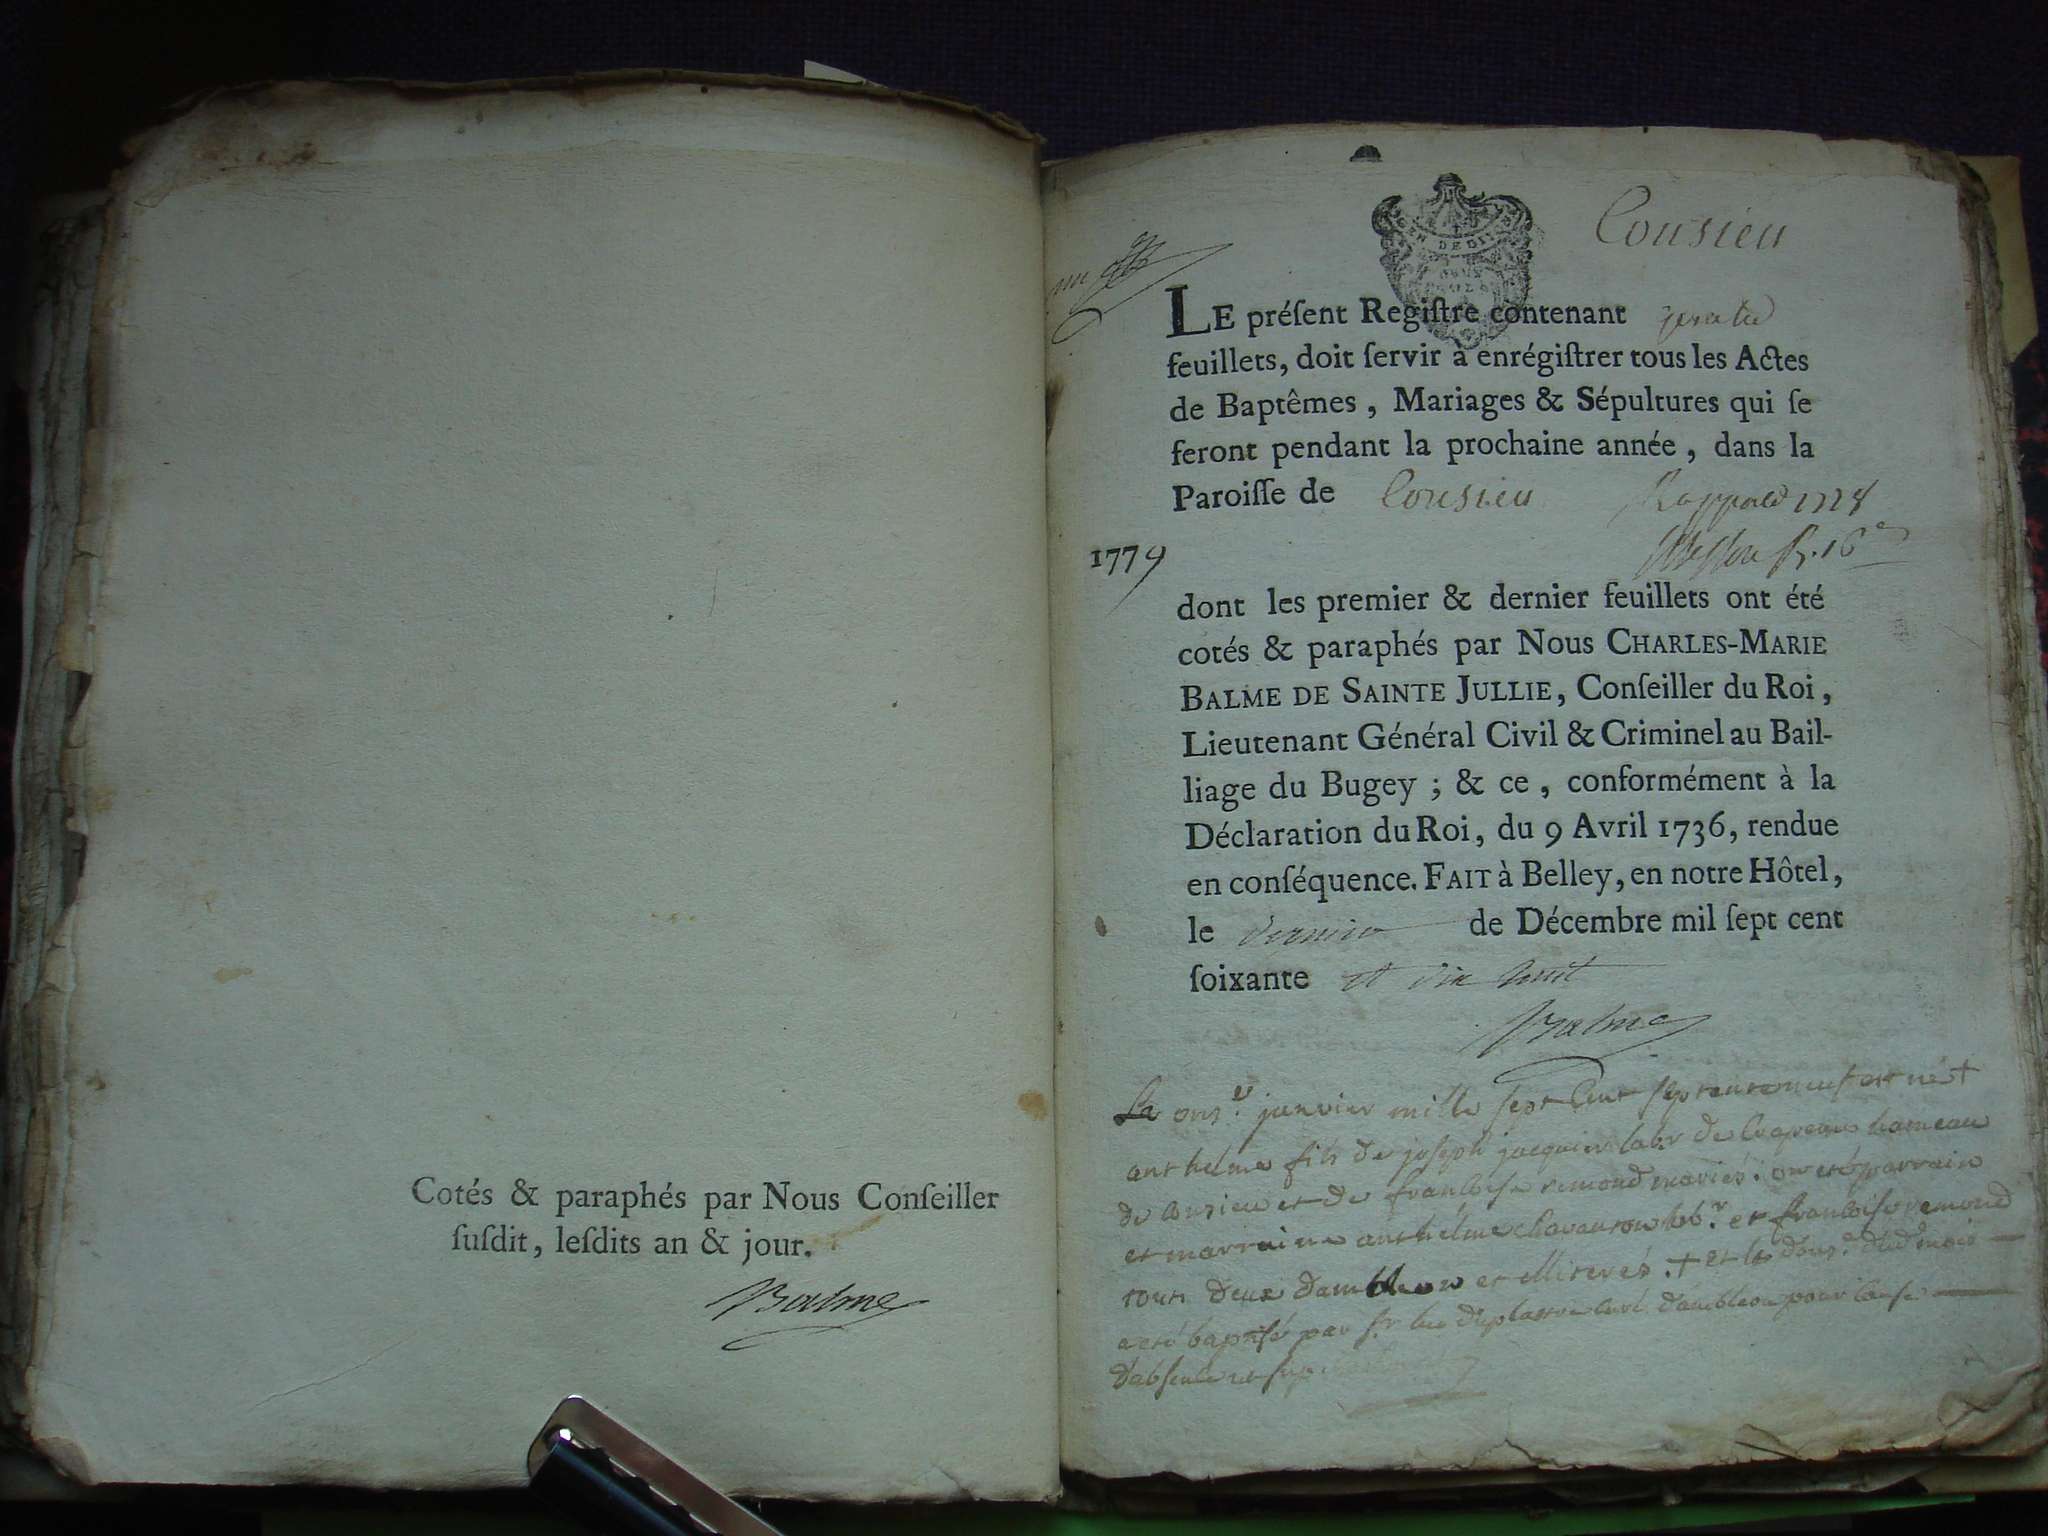 Cotés & paraphés par Nous Conſeiller
ſuſdit, leſdits an & jour.
Balme
Conzieu
LE préſent Regiſtre contenant quatre
feuillets, doit ſervir à enrégiſtrer tous les Actes
de Baptêmes, Mariages & Sépultures qui ſe
feront pendant la prochaine année, dans la
Paroiſſe de Conzieu
1779
dont les premier & dernier feuillets ont été
cotés & paraphés par Nous CHARLES-MARIE
BALME DE SAINTE JULLIE, Conſeiller du Roi,
Lieutenant Général Civil & Criminel au Bail-
liage du Bugey ; & ce, conformément à la
Déclaration du Roi, du 9 Avril 1736, rendue
en conſéquence. FAIT à Belley, en notre Hôtel,
le dernier de Décembre mil ſept cent
ſoixante et dix huit
Balme
Le onze janvier mille sept cent septente neuf est né +
anthelme fils de joseph jacquin labr de Crapeou hameau
de Conzieu et de francoise remond mariés. ont eté parrain
et marraine anthelme chavanton lab.r et francoise remond
tous deux dambleon et illiterés. + et le douze dud mois
a eté baptisé par sr duplastre curé dambleon pour cause
dabsence